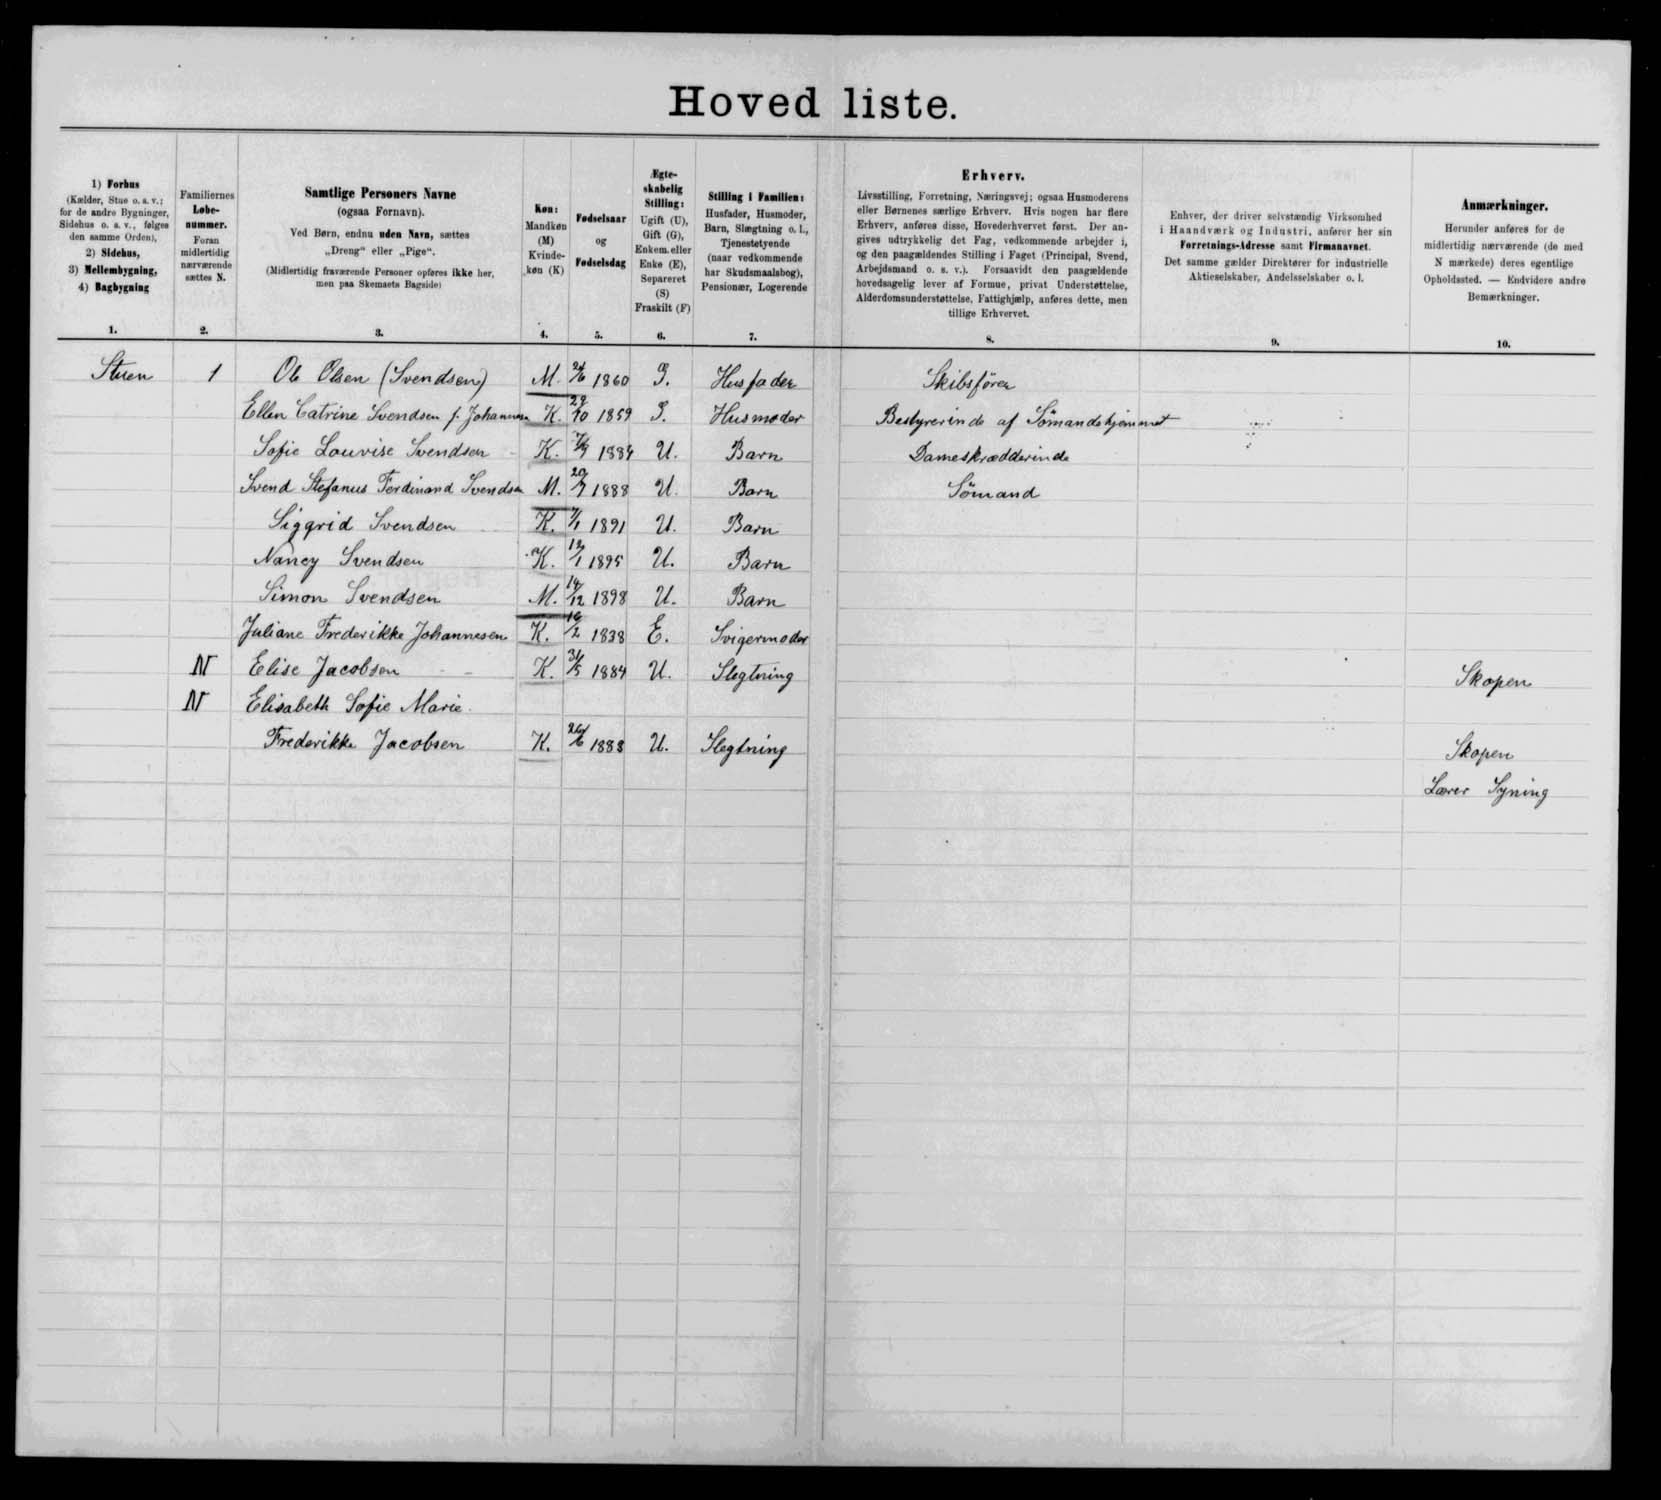 Hoved liste.
1) Forhus
(Kælder, Stue o. s. v.;
for de andre Bygninger,
Sidehus o. s. v., følges
den samme Orden),
2) Sidehus,
3) Mellembygning,
4) Bagbygning
1.
Familiernes
Løbe-
nummer.
Foran
midlertidig
nærværende
sættes N.
2.
Samtlige Personers Navne
(ogsaa Fornavn).
Ved Børn, endnu uden Navn, sættes
„Dreng“ eller „Pige“.
(Midlertidig fraværende Personer opføres ikke her,
men paa Skemaets Bagside)
3.
Køn:
Mandkøn
(M)
Kvinde-
køn (K)
4.
Fødselsaar
og
Fødselsdag
5.
Ægte-
skabelig
Stilling:
Ugift (U),
Gift (G),
Enkem. eller
Enke (E),
Separeret
(S)
Fraskilt (F)
6.
Stilling i Familien:
Husfader, Husmoder,
Barn, Slægtning o. l.,
Tjenestetyende
(naar vedkommende
har Skudsmaalsbog),
Pensionær, Logerende
7.
Erhverv.
Livsstilling, Forretning, Næringsvej; ogsaa Husmoderens
eller Børnenes særlige Erhverv. Hvis nogen har flere
Erhverv, anføres disse, Hovederhvervet først. Der an-
gives udtrykkelig det Fag, vedkommende arbejder i,
og den paagældendes Stilling i Faget (Principal, Svend,
Arbejdsmand o. s. v.). Forsaavidt den paagældende
hovedsagelig lever af Formue, privat Understøttelse,
Alderdomsunderstøttelse, Fattighjælp, anføres dette, men
tillige Erhvervet.
8.
Enhver, der driver selvstændig Virksomhed
i Haandværk og Industri, anfører her sin
Forretnings-Adresse samt Firmanavnet.
Det samme gælder Direktører for industrielle
Aktieselskaber, Andelsselskaber o. l.
9.
Anmærkninger.
Herunder anføres for de
midlertidig nærværende (de med
N mærkede) deres egentlige
Opholdssted. — Endvidere andre
Bemærkninger.
10.
Stuen 1 Ole Olsen (Svendsen) M. 24/6 1860 G. Husfader Skibsfører
Ellen Catrine Svendsen f. Johannesen K. 29/10 1859 G. Husmoder Bestyrerinde af Sömandshjemmet
Sofie Louvise Svendsen K. 7/9 1884 U. Barn Dameskrædderinde
Svend Stefanus Ferdinand Svendsen M. 20/7 1888 U. Barn Sömand
Siggrid Svendsen K. 7/1 1891 U. Barn
Nancy Svendsen K. 12/1 1895 U. Barn
Simon Svendsen M. 14/12 1898 U. Barn
Juliane Frederikke Johannesen K. 16/2 1838 E. Svigermoder
N Elise Jacobsen K. 31/5 1884 U. Slegtning Skopen
N Elisabeth Sofie Marie
Frederikke Jacobsen K. 26/6 1888 U. Slegtning Skopen
Lærer Syning